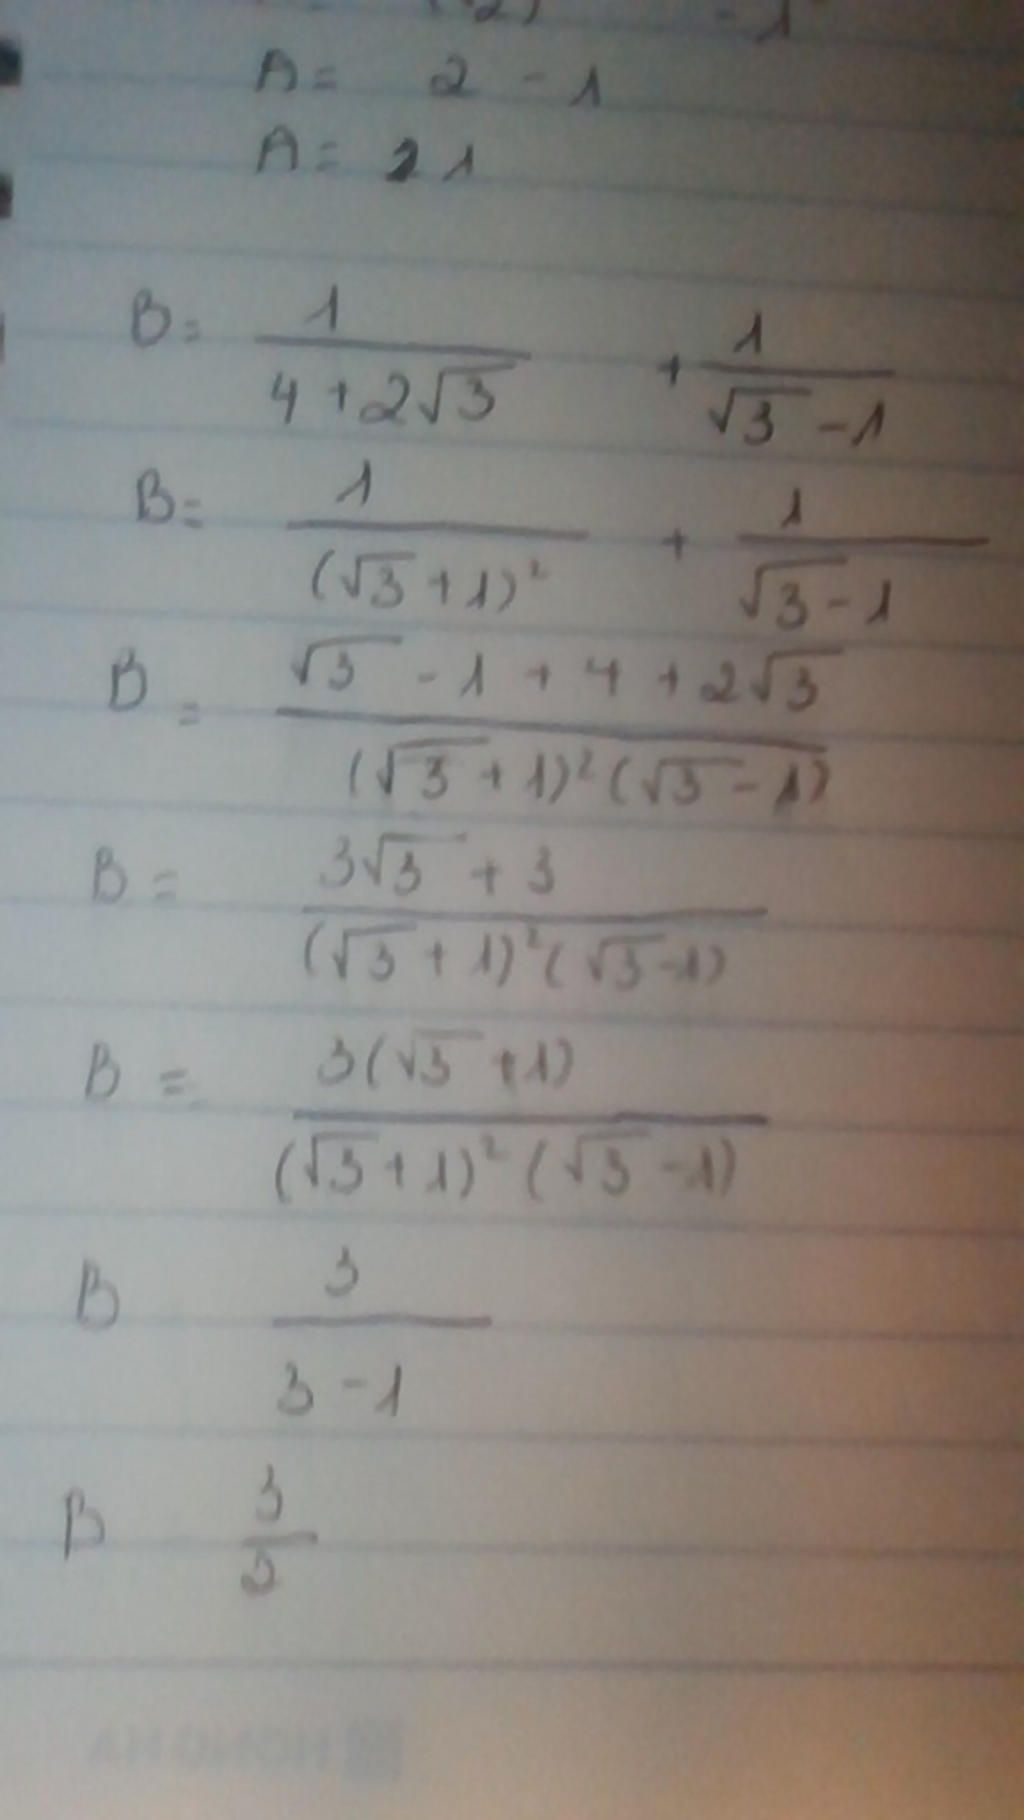 (2) - 1
A = 2 - 1
A = 21
B = 1/(4 + 2√3) + 1/(√3 - 1)
B = 1/(√3 + 1)² + 1/(√3 - 1)
B = (√3 - 1 + 4 + 2√3)/((√3 + 1)²(√3 - 1))
B = (3√3 + 3)/((√3 + 1)²(√3 - 1))
B = 3(√3 + 1)/((√3 + 1)²(√3 - 1))
B 3/(3 - 1)
B 3/2